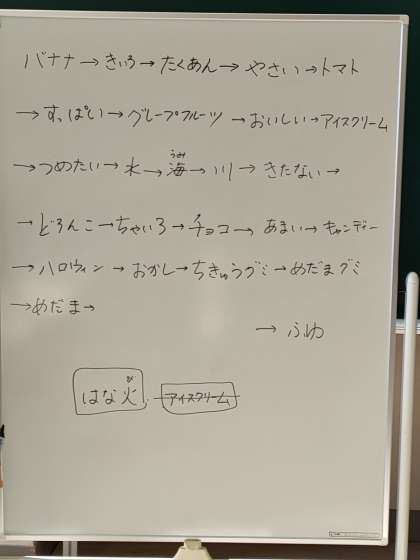 バナナ→きいろ→たくあん→やさい→トマト
→すっぱい→グレープフルーツ→おいしい→アイスクリーム
→つめたい→水→海→川→きたない→
うみ
→どろんこ→ちゃいろ→チョコ→あまい→キャンディー
→ハロウィン→おかし→ちきゅうグミ→めだまグミ
→めだま→
→ふゆ
はな火 アイスクリーム
び